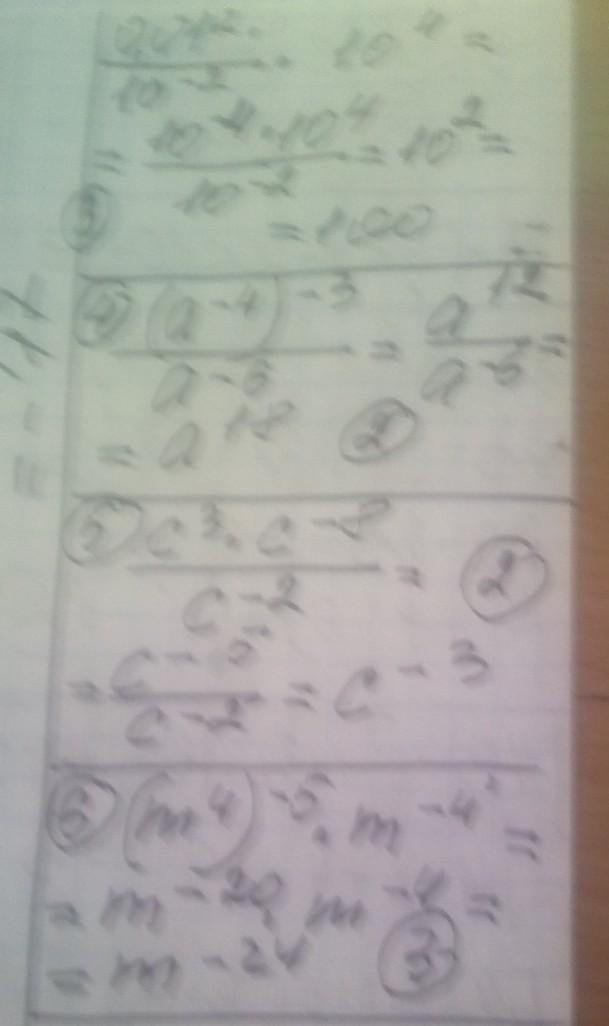 0,01². / 10⁻² · 10⁴ =
= 10⁻⁴ · 10⁴ / 10⁻² = 10² =
③ = 100
④ (a⁻⁴)⁻³ / a⁻⁶ = a¹² / a⁻⁶ =
= a¹⁸ ②
⑤ c³ · c⁻⁸ / c⁻² = ②
= c⁻⁵ / c⁻² = c⁻³
⑥ (m⁴)⁻⁵ · m⁻⁴ =
= m⁻²⁰ · m⁻⁴ =
= m⁻²⁴ ③